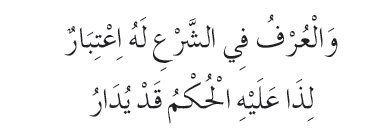 وَالْعُرْفُ فِي الشَّرْعِ لَهُ اِعْتِبَارٌ
لِذَا عَلَيْهِ الْحُكْمُ قَدْ يُدَارُ